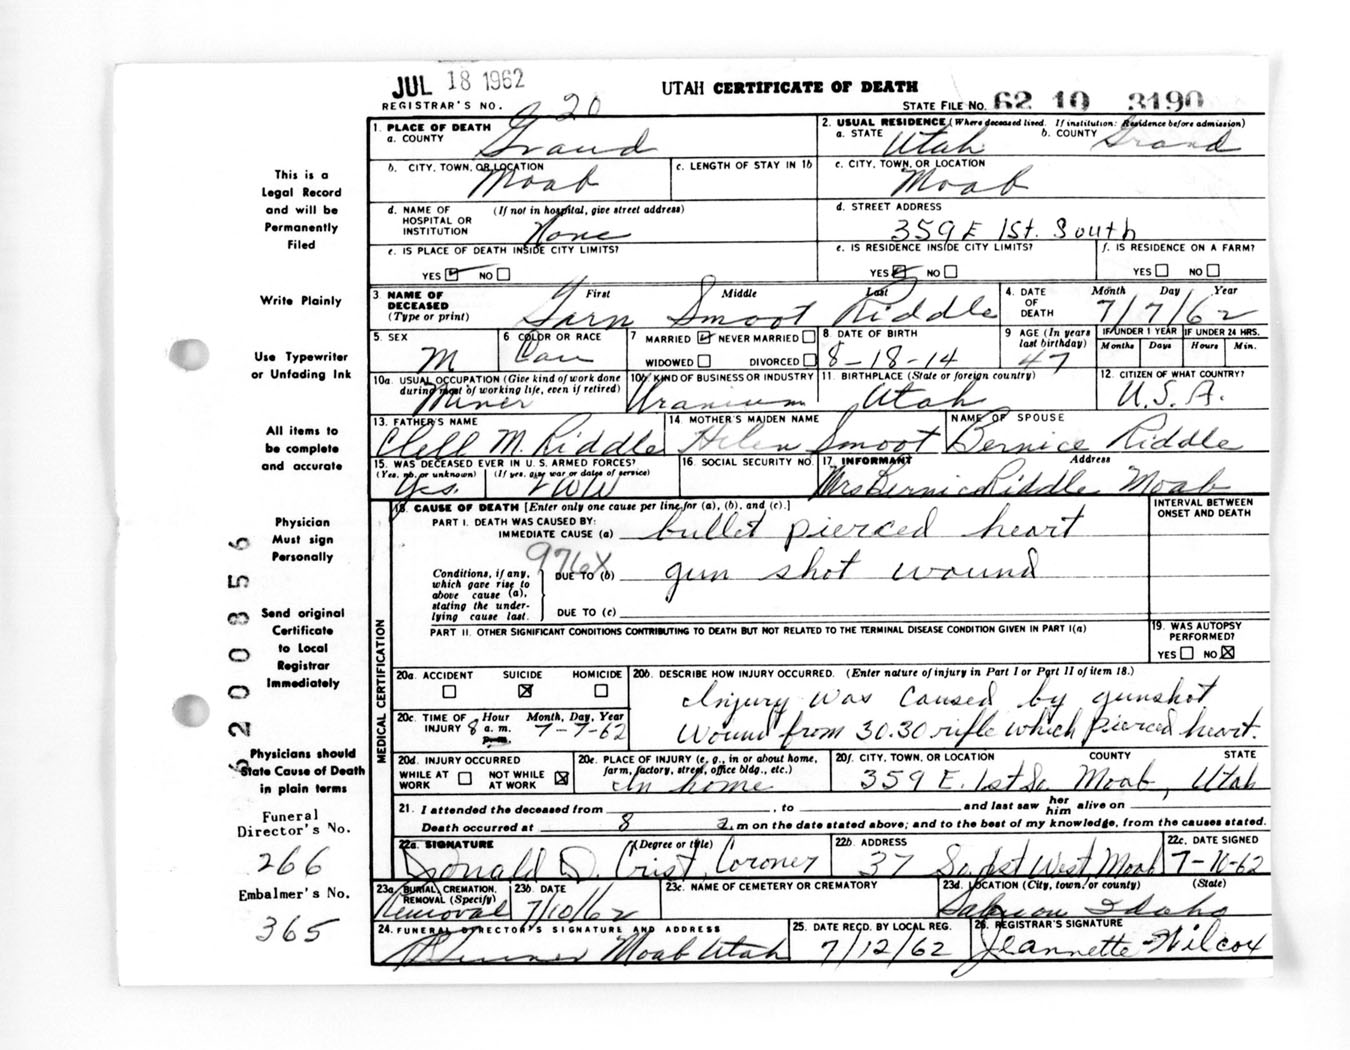 JUL 18 1962
UTAH CERTIFICATE OF DEATH
REGISTRAR'S NO. 20
STATE FILE NO. 62 19 3190
1. PLACE OF DEATH
a. COUNTY
Grand
2. USUAL RESIDENCE (Where deceased lived. If institution: Residence before admission)
a. STATE Utah b. COUNTY Grand
This is a
Legal Record
and will be
Permanently
Filed
b. CITY, TOWN, OR LOCATION
Moab
c. LENGTH OF STAY IN 1b
c. CITY, TOWN, OR LOCATION
Moab
d. NAME OF HOSPITAL OR INSTITUTION (If not in hospital, give street address)
None
d. STREET ADDRESS
359 E 1St. South
e. IS PLACE OF DEATH INSIDE CITY LIMITS?
YES NO
e. IS RESIDENCE INSIDE CITY LIMITS?
YES NO
f. IS RESIDENCE ON A FARM?
YES NO
Write Plainly
3 NAME OF DECEASED (Type or print)
First Middle Last
Garn Smoot Riddle
4. DATE OF DEATH
Month Day Year
7/7/62
Use Typewriter
or Unfading Ink
5. SEX
M
6 COLOR OR RACE
Cau
7 MARRIED NEVER MARRIED
WIDOWED DIVORCED
8 DATE OF BIRTH
8-18-14
9 AGE (In years last birthday)
47
IF UNDER 1 YEAR
Months Days
IF UNDER 24 HRS.
Hours Min.
10a. USUAL OCCUPATION (Give kind of work done during most of working life, even if retired)
Miner
10b. KIND OF BUSINESS OR INDUSTRY
Uranium
11. BIRTHPLACE (State or foreign country)
Utah
12. CITIZEN OF WHAT COUNTRY?
U.S.A.
All items to
be complete
and accurate
13. FATHER'S NAME
Clell M. Riddle
14. MOTHER'S MAIDEN NAME
Helen Smoot
NAME OF SPOUSE
Bernice Riddle
15. WAS DECEASED EVER IN U. S. ARMED FORCES?
(Yes, no, or unknown) (If yes, give war or dates of service)
Yes.
16. SOCIAL SECURITY NO.
17. INFORMANT Address
Mrs Bernice Riddle Moab
Physician
Must sign
Personally
18. CAUSE OF DEATH [Enter only one cause per line for (a), (b), and (c).]
PART I. DEATH WAS CAUSED BY:
IMMEDIATE CAUSE (a) bullet pierced heart
INTERVAL BETWEEN
ONSET AND DEATH
976X
Conditions, if any,
which gave rise to
above cause (a),
stating the under-
lying cause last.
DUE TO (b) gun shot wound
DUE TO (c)
Send original
Certificate
to Local
Registrar
Immediately
PART II. OTHER SIGNIFICANT CONDITIONS CONTRIBUTING TO DEATH BUT NOT RELATED TO THE TERMINAL DISEASE CONDITION GIVEN IN PART I(a)
19. WAS AUTOPSY
PERFORMED?
YES NO
MEDICAL CERTIFICATION
20a. ACCIDENT SUICIDE HOMICIDE
20b. DESCRIBE HOW INJURY OCCURRED. (Enter nature of injury in Part I or Part II of item 18.)
Injury was caused by gunshot
wound from 30.30 rifle which pierced heart.
20c. TIME OF INJURY
Hour Month, Day, Year
8 a. m. 7-7-62
p.m.
Physicians should
State Cause of Death
in plain terms
20d. INJURY OCCURRED
WHILE AT WORK NOT WHILE AT WORK
20e. PLACE OF INJURY (e. g., in or about home, farm, factory, street, office bldg., etc.)
In home
20f. CITY, TOWN, OR LOCATION COUNTY STATE
359 E. 1st So. Moab, Utah
21. I attended the deceased from , to and last saw her him alive on
Death occurred at 8 a. m on the date stated above; and to the best of my knowledge, from the causes stated.
Funeral
Director's No.
266
22a. SIGNATURE (Degree or title)
Donald D. Crist, Coroner
22b. ADDRESS
37 So. 1st West, Moab
22c. DATE SIGNED
7-10-62
Embalmer's No.
365
23a. BURIAL, CREMATION, REMOVAL (Specify)
Removal
23b. DATE
7/10/62
23c. NAME OF CEMETERY OR CREMATORY
23d. LOCATION (City, town, or county) (State)
Salmon Idaho
24. FUNERAL DIRECTOR'S SIGNATURE AND ADDRESS
Moab Utah
25. DATE RECD. BY LOCAL REG.
7/12/62
26. REGISTRAR'S SIGNATURE
Jeannette Wilcox